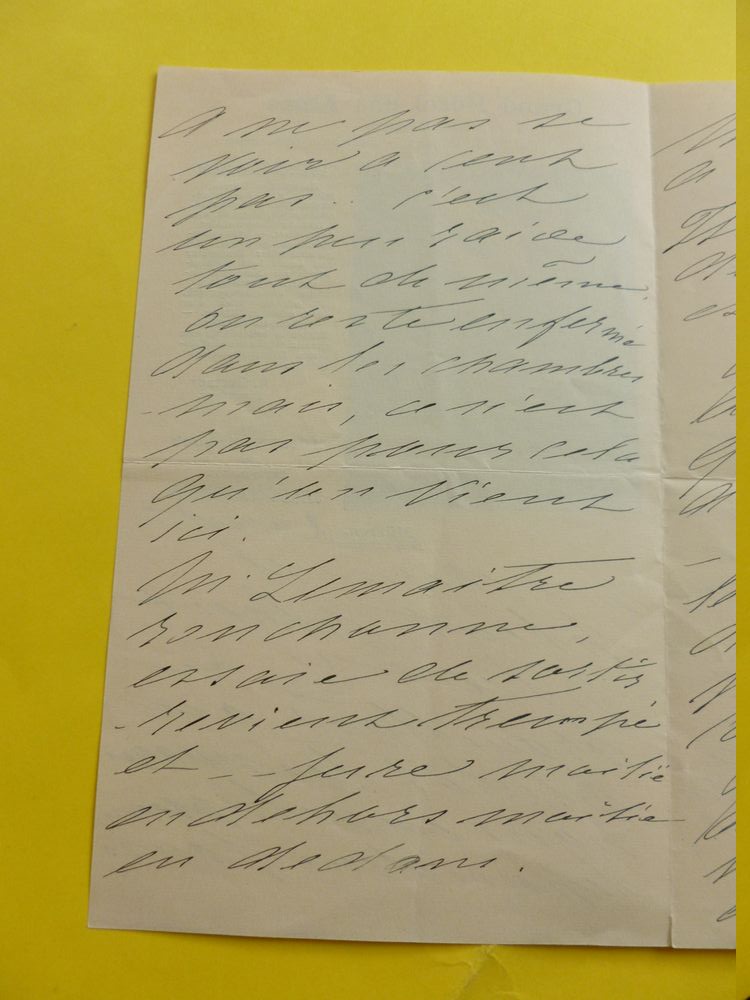 a ne pas se
voir a cent
pas.. c'est
un peu raide
tout de même.
on reste enfermé
dans les chambres
- mais, ce n'est
pas pour cela
qu'on vient
ici.
M. Lemaitre
ronchonne,
essaie de sortir
- revient trempé
et - - jure moitié
en dehors moitié
en dedans.